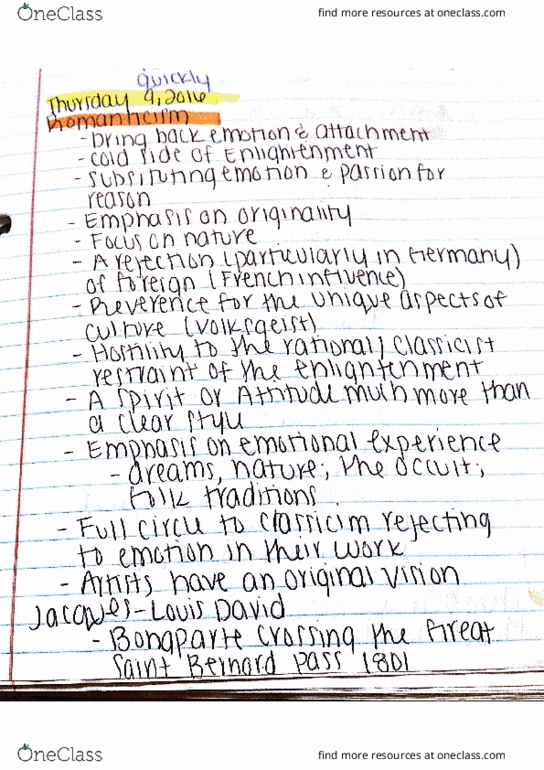 OneClass
find more resources at oneclass.com
quickly
Thursday 9, 2016
Romanticism
- Bring back emotion & attachment
- cold side of Enlightenment
- substituting emotion & passion for
reason
- Emphasis on originality
- Focus on nature
- A rejection (particularly in Germany)
of foreign (French influence)
- Reverence for the unique aspects of
culture (volksgeist)
- Hostility to the rational, classicist
restraint of the enlightenment
- A spirit or Attitude much more than
a clear style
- Emphasis on emotional experience
- dreams, nature, the occult,
folk traditions.
- Full circle to classicim rejecting
to emotion in their work
- Artists have an original vision
Jacques-Louis David
- Bonaparte Crossing the Great
Saint Bernard pass 1801
OneClass
find more resources at oneclass.com